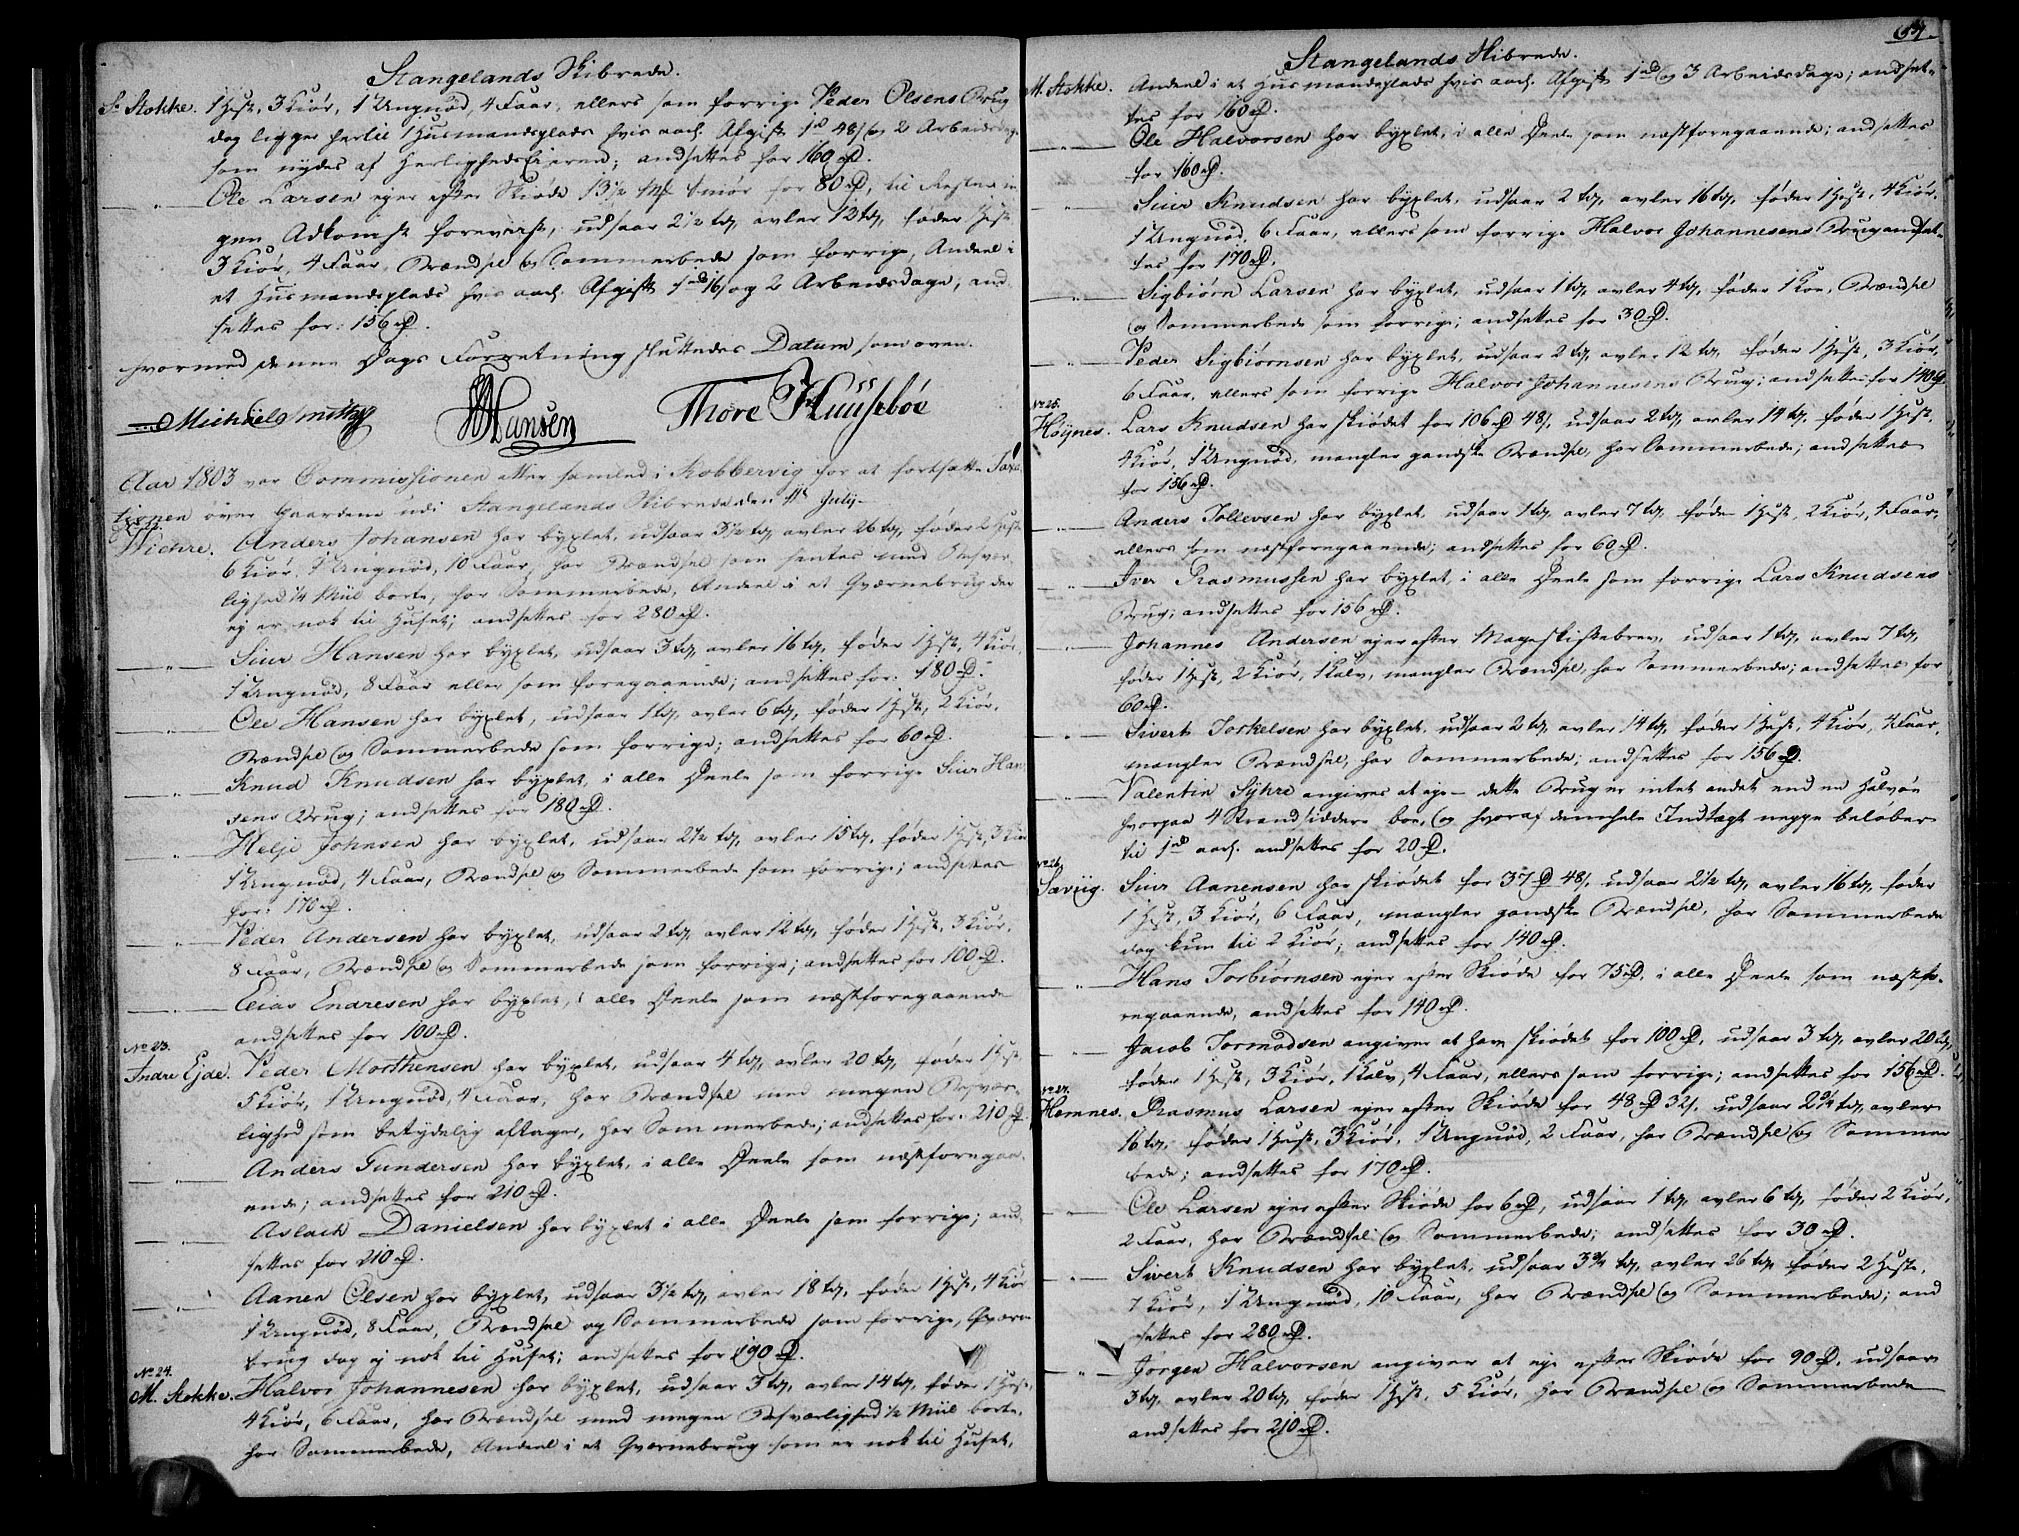 Stangelands Skibrede.
St. Stokke. 1 Hest, 3 Kiør, 1 Ungnød, 4 Faar, ellers som forrige Peder Olsens Brug
dog ligger hertil 1 Husmandsplads hvis aarl. Afgift 1 rd 48 s og 2 Arbeidsdage
som nydes af Herligheds Eieren; andsættes for 160 rd.
Ole Larsen ejer efter Skiøde 13 1/2 Smør for 80 rd, til Resten in
gen Adkomst foreviist, udsaar 2 1/2 td, avler 12 td, føder 1 Hest
3 Kiør, 4 Faar, Brændsel og Sommerbede som forrige, Andeel i
et Husmandsplads hvis aarl. Afgift 1 rd 16 s og 2 Arbeidsdage, and
settes for: 156 rd.
hvormed denne Dags Forretning sluttedes Datum som oven.
Michael Smith HHansen Thore Huusebøe
Aar 1803 var Commissionen atter samled i Kobbervig for at fortsætte Taxa
tionen over Gaardene udi Stangelands Skibrede den 11te July.
Wichre. Anders Johansen har byxlet, udsaar 3 1/2 td, avler 26 td, føder 2 Heste
6 Kiør, 1 Ungnød, 10 Faar, har Brændsel som hentes med Besvær
lighed 1/4 Miil borte, har Sommerbede, Andeel i et Qværnebrug der
ej er nok til Huset; andsettes for 280 rd.
Siur Hansen har byxlet, udsaar 3 td, avler 16 td, føder 1 Hest, 4 Kiør,
1 Ungnød, 8 Faar ellers som foregaaende; andsettes for: 180 rd.
Ole Hansen har byxlet, udsaar 1 td, avler 6 td, føder 1 Hest, 2 Kiør,
Brændsel og Sommerbede som forrige; andsettes for 60 rd.
Knud Knudsen har byxlet, i alle Deele som forrige Siur Han
sens Brug; andsettes for 180 rd.
Helje Johnsen har byxlet, udsaar 2 1/2 td, avler 15 td, føder 1 Hest, 3 Kiør
1 Ungnød, 4 Faar, Brændsel og Sommerbede som forrige; andsettes
for: 170 rd.
Peder Andersen har byxlet, udsaar 2 td, avler 12 td, føder 1 Hest, 3 Kiør,
8 Faar, Brændsel og Sommerbede som forrige; andsettes for 100 rd.
Elias Endresen har byxlet, i alle Deele som næstforegaaende
andsettes for 100 rd.
No 23.
Indre Ejde. Peder Morthensen har byxlet, udsaar 4 td, avler 20 td, føder 1 Hest
5 Kiør, 1 Ungnød, 4 Faar, har Brændsel med megen Besvær
lighed som betydelig aftager, har Sommerbede; andsettes for. 210 rd,
Anders Gundersen har byxlet, i alle Deele som næstforegaa
ende; andsettes for 210 rd.
Aslach Danielsen har byxlet i alle Deele som forrige; and
settes for 210 rd.
Aanen Olsen har byxlet, udsaar 3 1/2 td, avler 18 td, føder 1 Hest, 4 Kiør
1 Ungnød, 8 Faar, Brændsel og Sommerbede som forrige, Qværne
brug dog ej nok til Huset; andsettes for 190 rd.
No 24.
M. Stokke. Halvor Johannesen har byxlet, udsaar 3 td, avler 14 td, føder 1 Hest,
4 Kiør, 6 Faar, har Brændsel med megen Besværlighed 1/2 Miil borte,
har Sommerbede, Andeel i et Qværnebrug som er nok til Huset,
Stangelands Skibrede.
M. Stokke. Andeel i et Husmandsplads hvis aarl. Afgift 1 rd og 3 Arbeidsdage; andset-
tes for 160 rd.
Ole Halvorsen har byxlet, i alle Deele som næstforegaaende; andsettes
for 160 rd.
Siur Knudsen har byxlet, udsaar 2 td, avler 16 td, føder 1 Hest, 4 Kiør,
1 Ungnød, 6 Faar, ellers som forrige Halvor Johannesens Brug andset-
tes for 170 rd.
Sigbiørn Larsen har byxlet, udsaar 1 td, avler 4 td, føder 1 Koe, Brændsel
og Sommerbede som forrige; andsettes for 30 rd.
Peder Sigbiørnsen har byxlet, udsaar 2 td, avler 12 td, føder 1 Hest, 3 Kiør,
6 Faar, ellers som forrige Halvor Johannesens Brug; andsettes for 140 rd
No 25.
Høynes. Lars Knudsen har skiødet for 106 rd 48 s, udsaar 2 td, avler 14 td, føder 1 Hest,
4 Kiør, 1 Ungnød, mangler gandske Brændsel, har Sommerbede; andsettes
for 156 rd.
Anders Tollevsen har byxlet, udsaar 1 td, avler 7 td, føder 1 Hest, 2 Kiør, 4 Faar,
ellers som næstforegaaende; andsettes for 60 rd.
Iver Rasmussen har byxlet, i alle Deele som forrige Lars Knudsens
Brug; andsettes for 156 rd.
Johannes Andersen ejer efter Mageskiftebrev, udsaar 1 td, avler 7 td,
føder 1 Hest, 2 Kiør, 1 Kalv, mangler Brændsel, har Sommerbede; andsettes for
60 rd.
Sivert Torkelsen har byxlet, udsaar 2 td, avler 14 td, føder 1 Hest, 4 Kiør, 4 Faar,
mangler Brændsel, har Sommerbede; andsettes for 156 rd.
Valentin Syhre angives at eje – dette Brug er intet andet end en Halvøe
hvorpaa 4 Strandsiddere boe, og hvoraf den heele Indtægt neppe beløber
til 1 rd aarl. andsettes for 20 rd.
No 26.
Sæviig. Siur Aanensen har skiødet for 37 rd 48 s, udsaar 2 1/2 td, avler 16 td, føder
1 Hest, 3 Kiør, 6 Faar, mangler gandske Brændsel, har Sommerbede
dog kun til 2 Kiør; andsettes for 140 rd.
Hans Torbiørnsen ejer efter Skiøde for 75 rd, i alle Deele som næstfo-
regaaende, andsettes for 140 rd.
Jacob Tormodsen angiver at have skiødet for 100 rd, udsaar 3 td, avler 20 td,
føder 1 Hest, 3 Kiør, 1 Kalv, 4 Faar, ellers som forrige; andsettes for 156 rd.
No 27.
Hemnes. Rasmus Larsen ejer efter Skiøde for 48 rd 32 s, udsaar 2 3/4 td, avler
16 td, føder 1 Hest, 3 Kiør, 1 Ungnød, 2 Faar, har Brændsel og Sommer
bede; andsettes for 170 rd.
Ole Larsen ejer efter Skiøde for 6 rd, udsaar 1 td, avler 6 td, føder 2 Kiør,
2 Faar, har Brændsel og Sommerbede; andsettes for 30 rd.
Sivert Knudsen har byxlet, udsaar 3 3/4 td, avler 26 td, føder 2 Heste,
7 Kiør, 1 Ungnød, 10 Faar, har Brændsel og Sommerbede; and
settes for 280 rd.
Jørgen Halvorsen angiver at eje efter Skiøde for 90 rd, udsaar
3 td, avler 20 td, føder 1 Hest, 5 Kiør, har Brændsel og Sommerbede
andsettes for 210 rd.